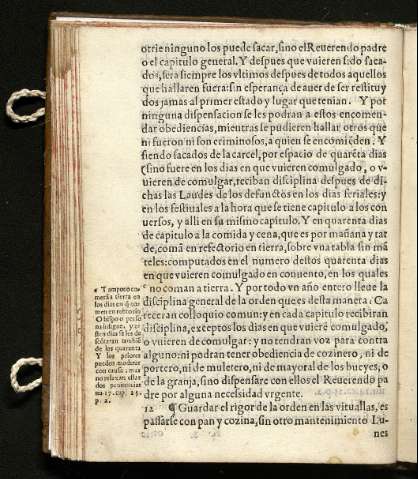 otrie ninguno los puede sacar, sino el Reuerendo padre
o el capitulo general. Y despues que vuieren sido saca-
dos, sera siempre los vltimos despues de todos aquellos
que hallaren fuera: sin esperança de auer de ser restituy
dos jamas al primer estado y lugar que tenian. Y por
ninguna dispensacion se les podran a estos encomen-
dar obediencias, mientras se pudieren hallar otros que
ni fueron ni son criminosos, a quien se encomiẽden. Y
siendo sacados de la carcel, por espacio de quarẽta dias
(sino fuere en los dias en que vuieren comulgado, o v-
uieren de comulgar, reciban disciplina despues de di-
chas las Laudes de los defunctos en los dias feriales: y
en los festiuales a la hora que se tiene capitulo a los con
uersos, y alli en su mismo capitulo. Y en quarenta dias
de capitulo a la comida y cena, que es por mañana y tar
de, comã en refectorio en tierra, sobre vna tabla sin mã
teles: computados en el numero destos quarenta dias
en que vuieren comulgado en conuento, en los quales
c no coman a tierra. Y por todo vn año entero lleue la
disciplina general de la orden que es desta manera. Ca
receran coloquio comun: y en cada capitulo recibiran
disciplina, exceptos los dias en que vuierẽ comulgado,
o vuieren de comulgar: y no tendran voz para contra
alguno: ni podran tener obediencia de cozinero, ni de
portero, ni de muletero, ni de mayoral de los bueyes, o
de la granja, sino dispensare con ellos el Reuerendo pa
dre por alguna necessidad vrgente.
12 ¶ Guardar el rigor de la orden en las vituallas, es
passarse con pan y cozina, sin otro mantenimiento Lu-
nes
c Tampoco co-
merã a tierra en
los dias en q̃ co-
men en refitorio
Obispo o perso
na
estos dias se les
tambiẽ
de los quarenta
Y los priores
pueden moderar
con causa, mas
no relaxar estas
dos penitencias
na. 17. cap. 25.
p. 2.